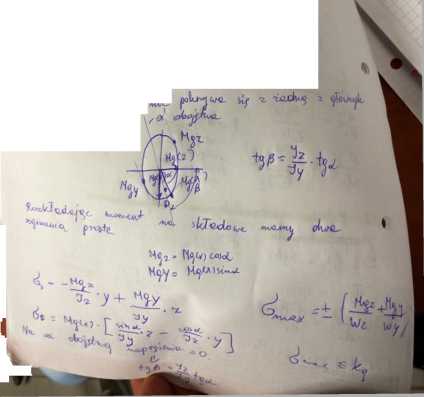 pokrywa się z żadną z głównych
oś obojętna
Mgz
Mg(z)
Mgy
α
β
tgβ = Jz/Jy · tgα
Rozkładając moment na składowe mamy dwa
zginania proste
Mgz = Mg(x) cosα
Mgy = Mg(x) sinα
= -Mgz/Jz · y + Mgy/Jy · z
σmax = ± (Mgz/Wz + Mgy/Wy)
= Mg(x) · [sinα/Jy · z - cosα/Jz · y]
Na osi obojętnej naprężenia = 0.
tgβ = Jz/Jy tgα
σmax ≤ kg